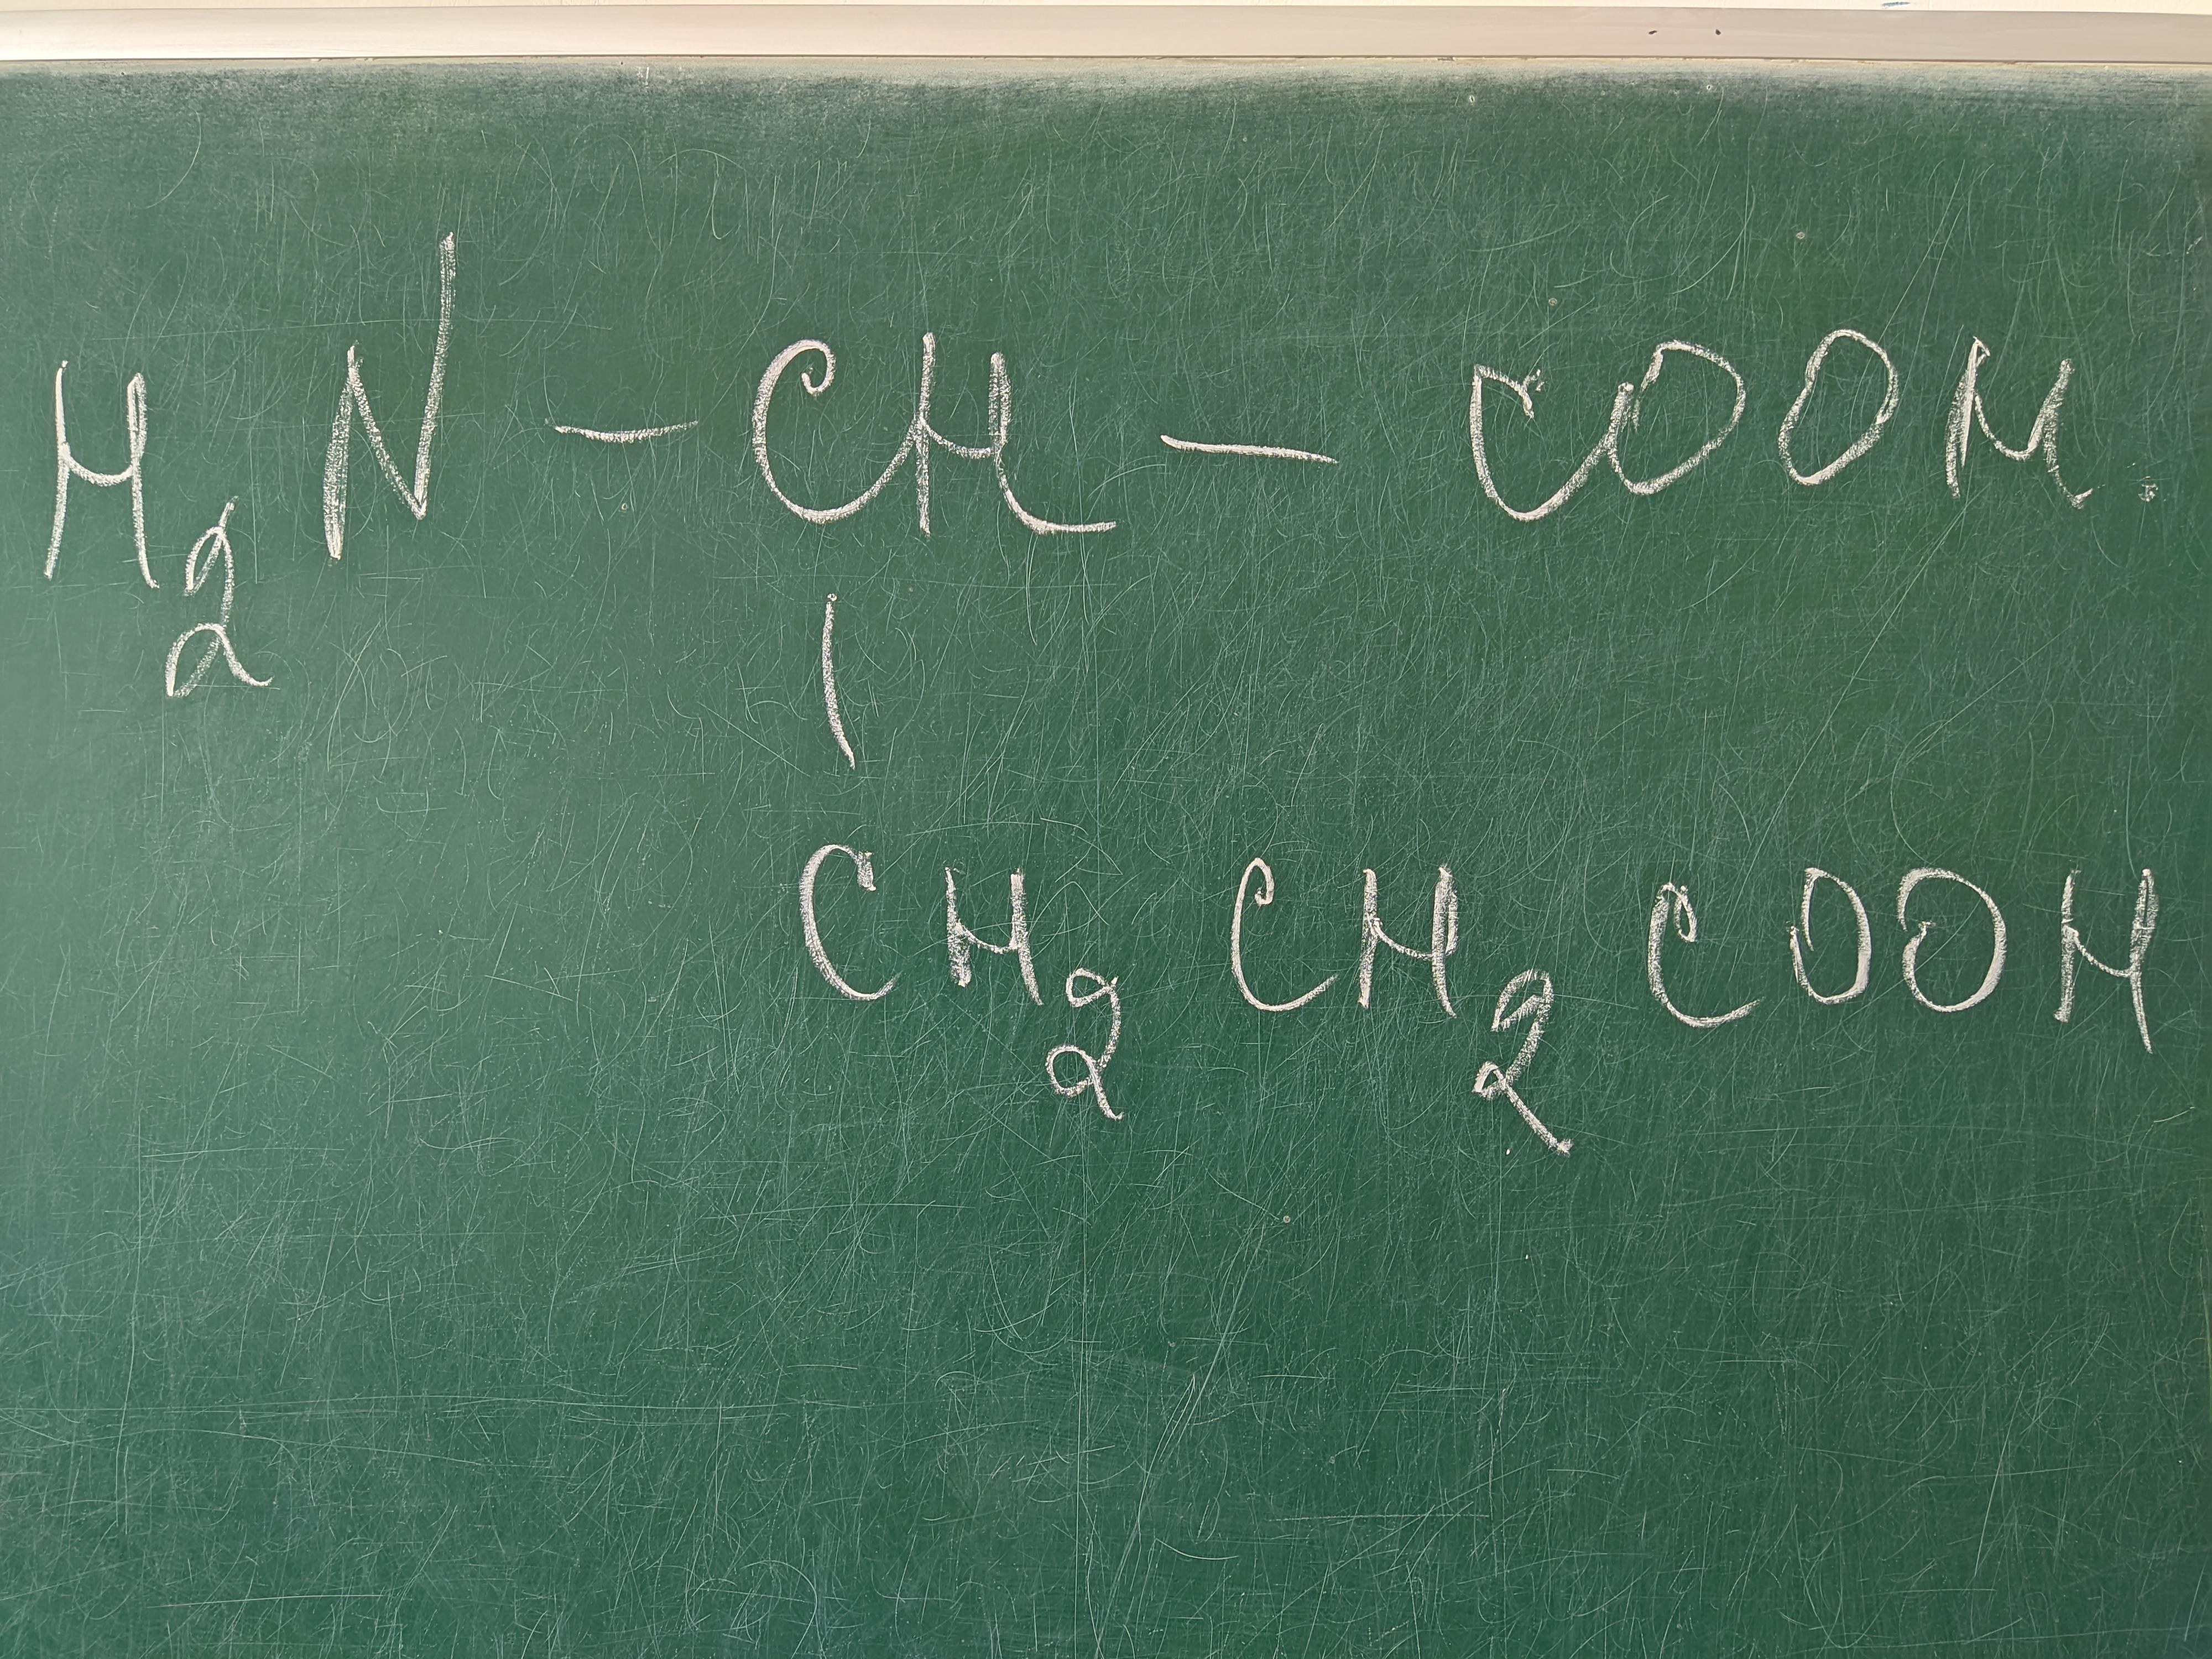 H₂N — CH — COOH
|
CH₂ CH₂ COOH